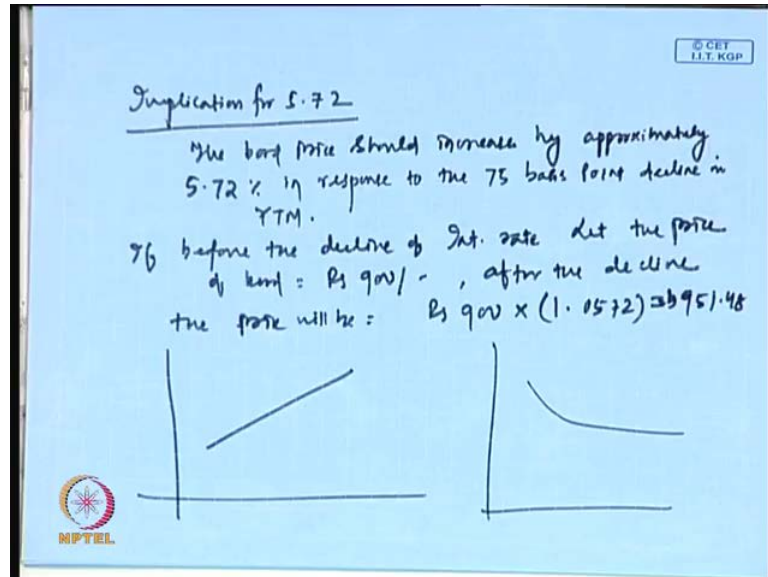 © CET
I.I.T. KGP
Implication for 5.72
The bond price should increase by approximately
5.72 % in response to the 75 basis point decline in
YTM.
If before the decline of Int. rate Let the price
of bond = Rs 900/- , after the decline
the price will be = Rs 900 × (1.0572) = 951.48
NPTEL